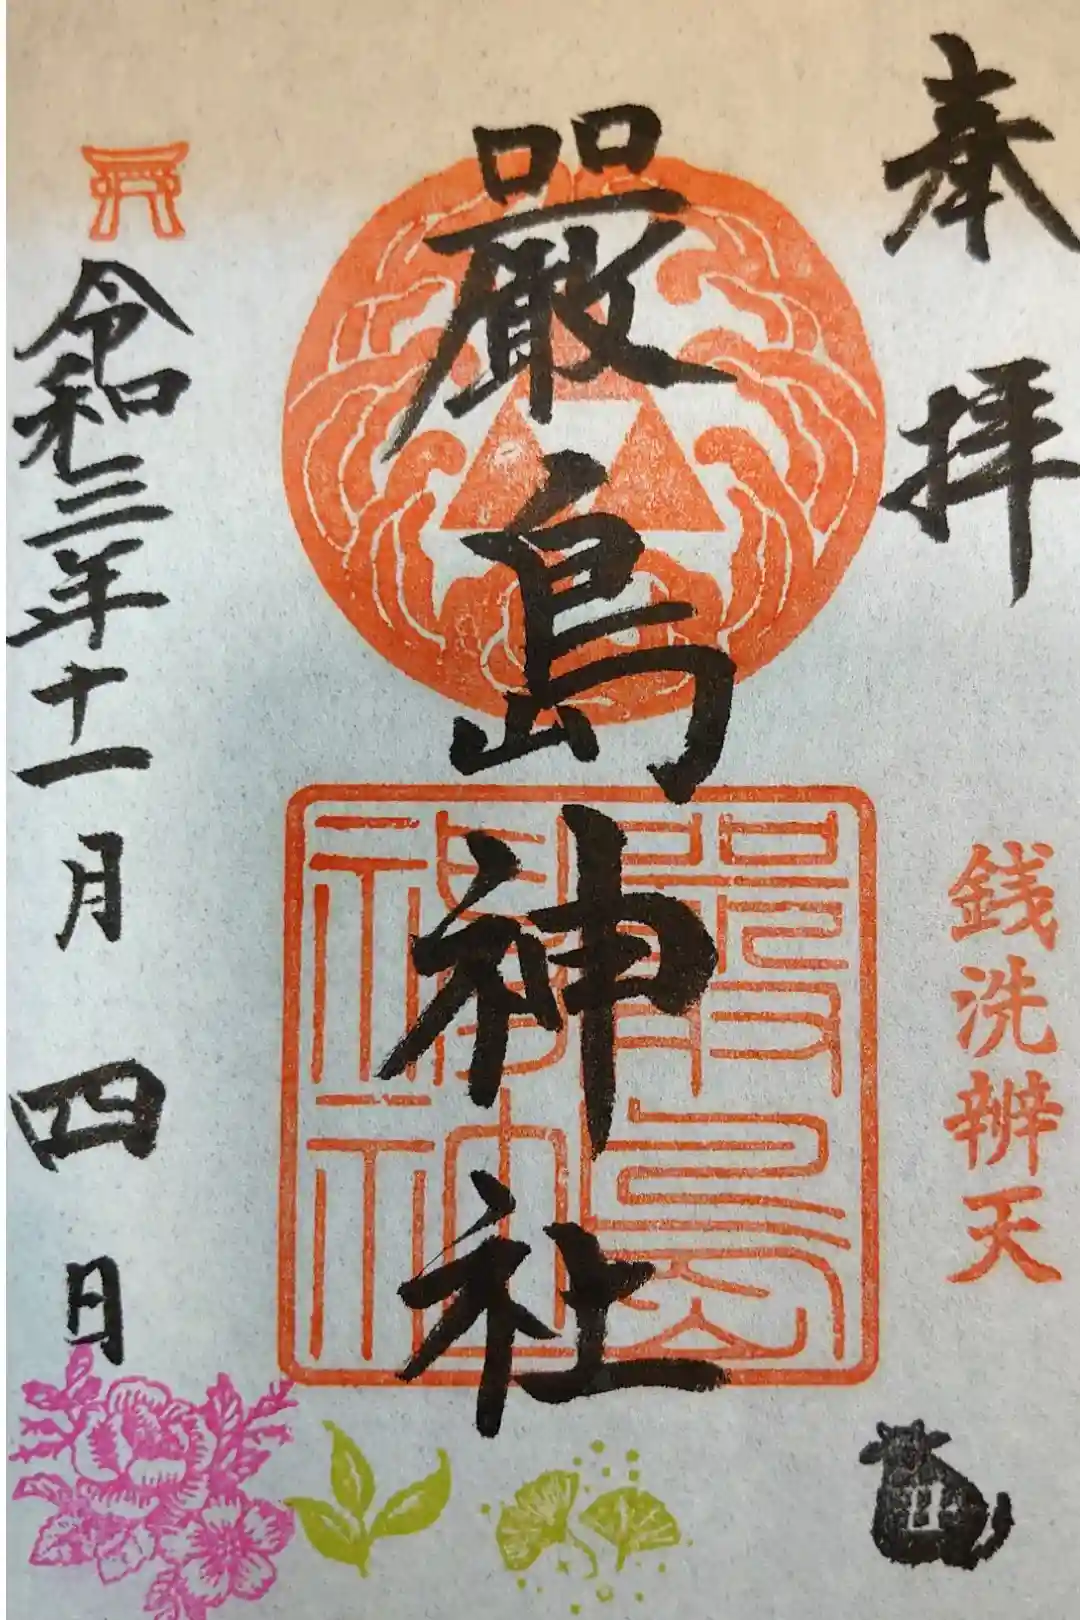 奉拝
銭洗辨天
丑
嚴島神社
嚴島神社
令和三年十一月四日